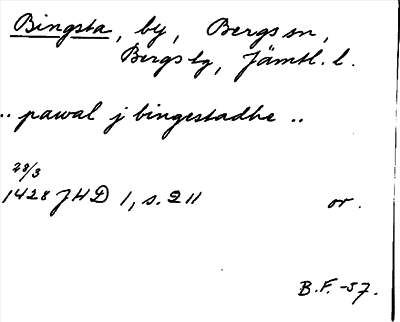 Bingsta, by, Bergs sn,
Bergs tg, Jämtl. l.
.. pawal j bingestadhe ..
28/3
1428 JHD 1, s. 211
or.
B.F. -57.